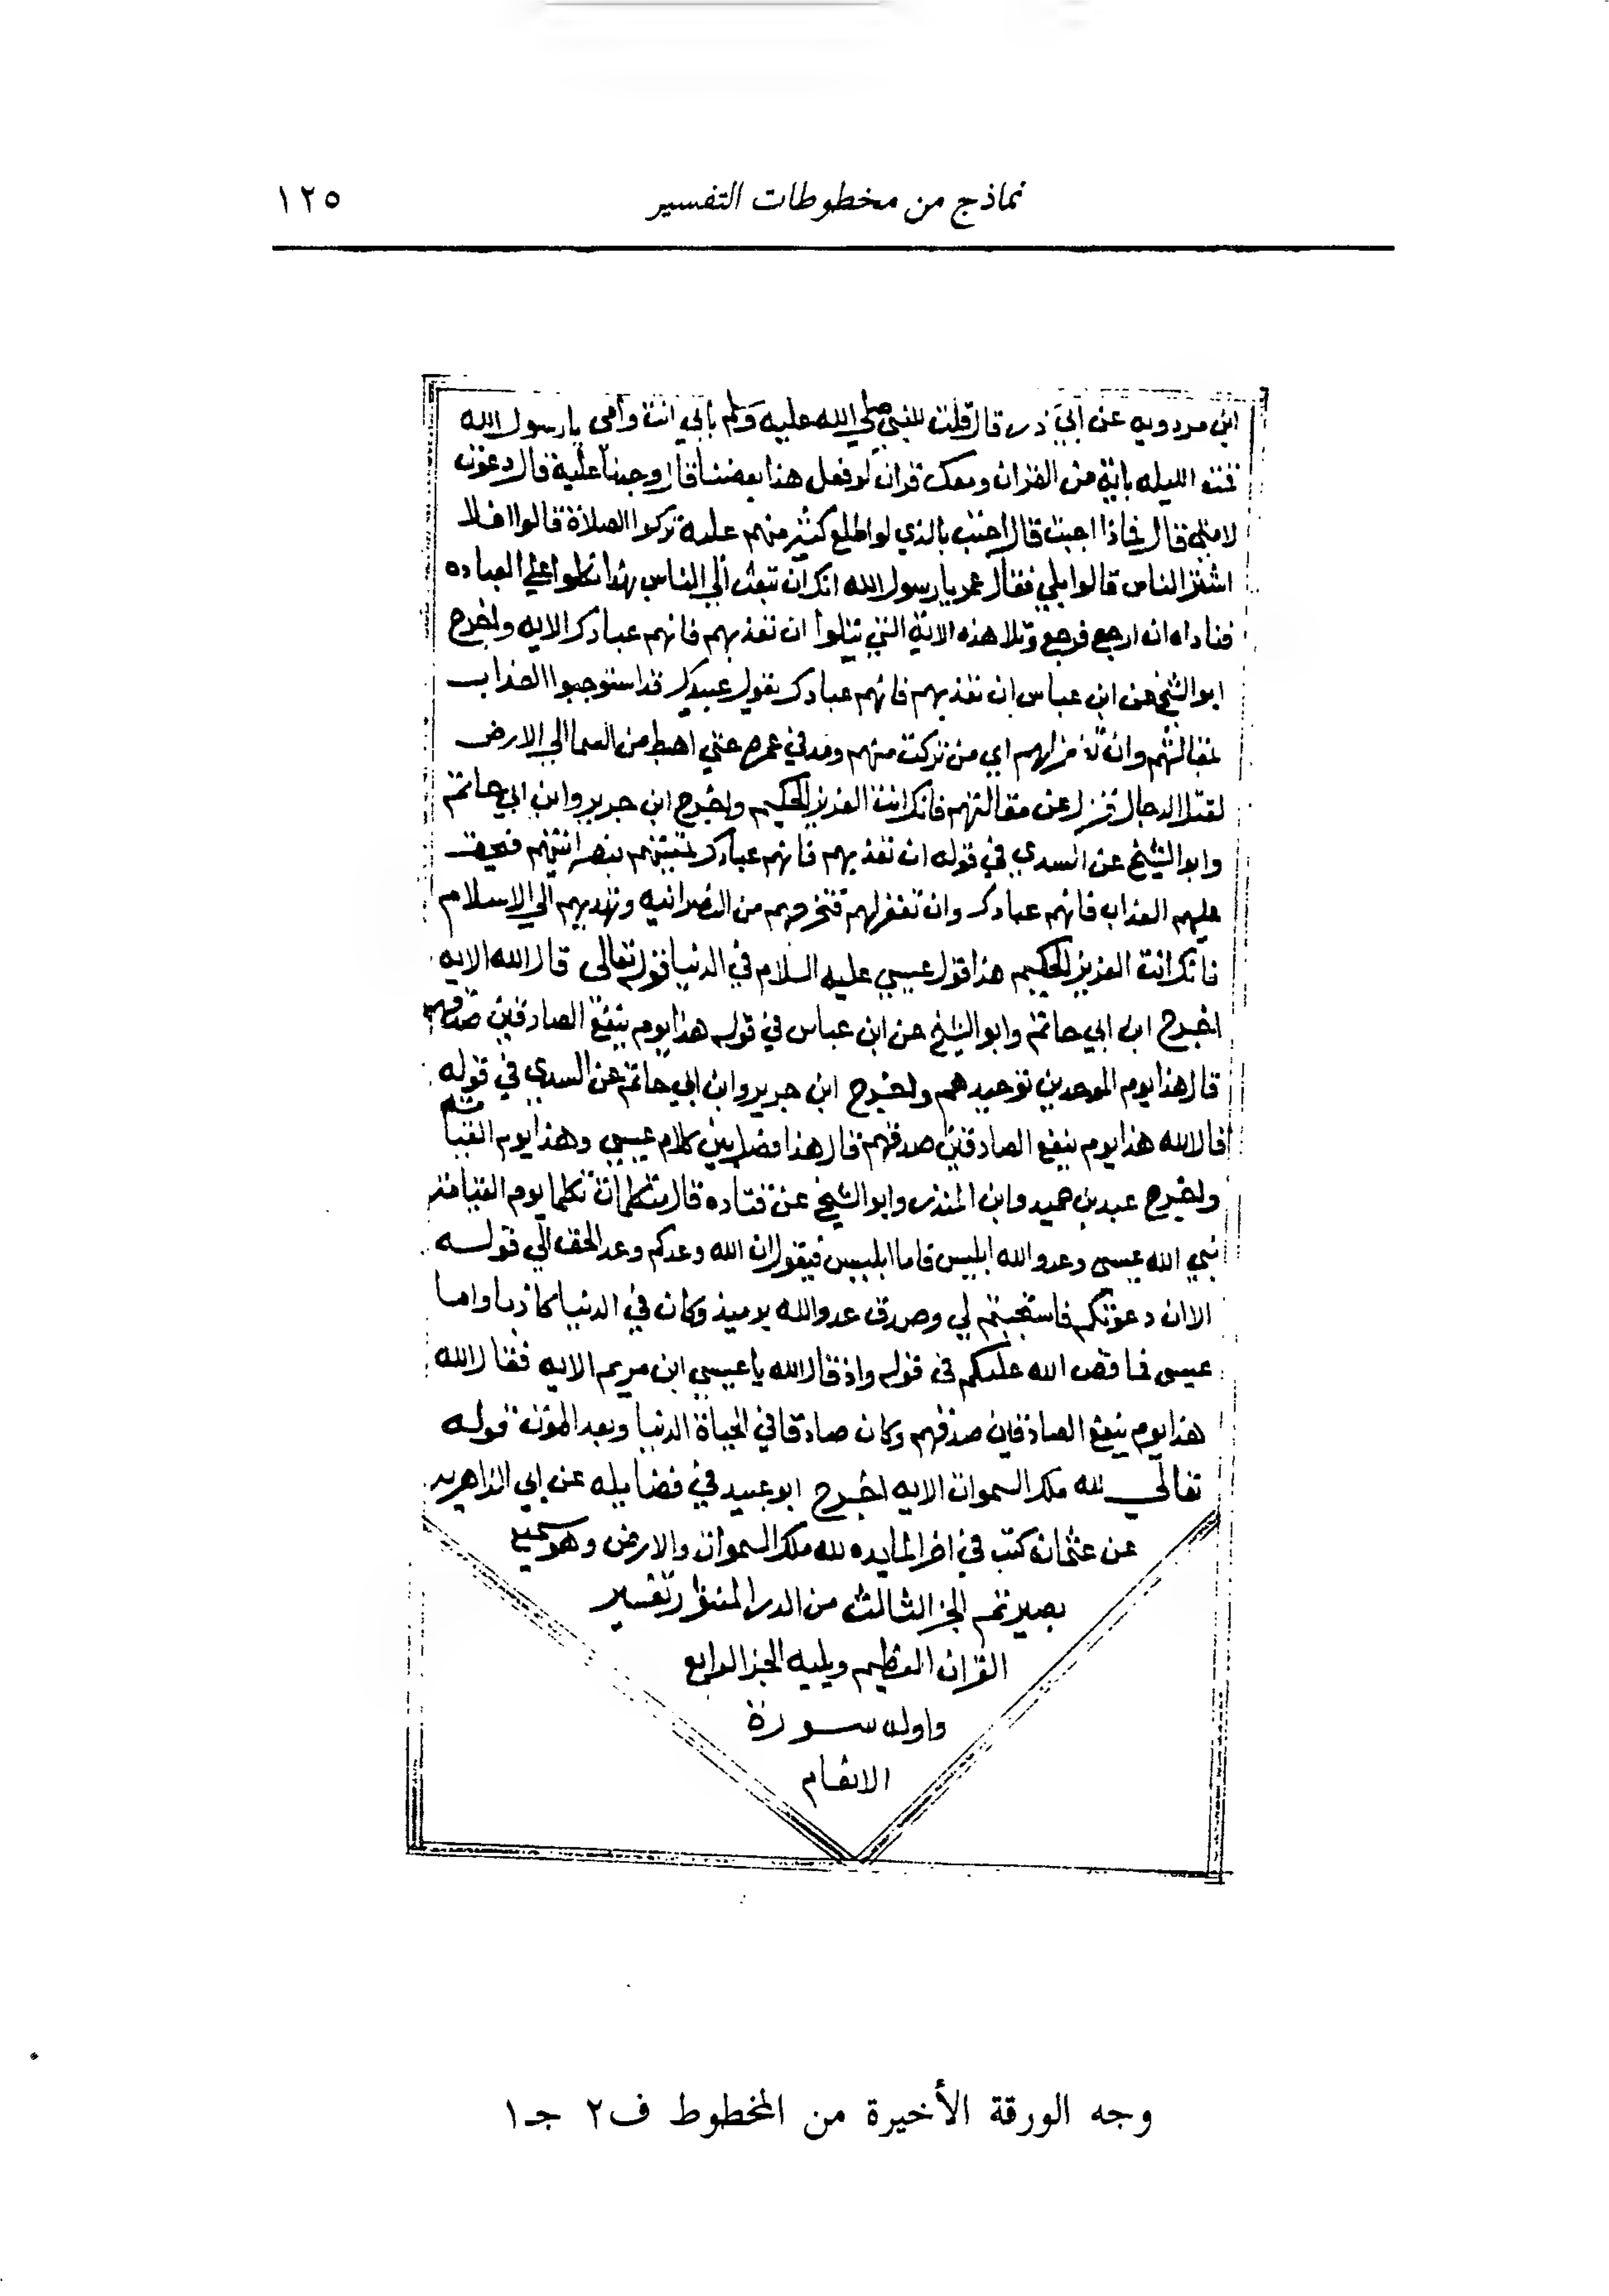 نماذج من مخطوطات التفسير ١٢٥
ابن مردويه عن ابي ذر قال قلت للنبي صلى الله عليه وسلم بابي انت وامي يا رسول الله
قمت الليله باية من القران ومعك قران لو فعل هذا بعضنا قال وجدنا عليه قال دعوت
لامتي قال فماذا اجبت قال اجبت بالذي لو اطلع كثير منهم عليه تركوا الصلاة قالوا افلا
ابشر الناس قالوا بلي فقال عمر يا رسول الله انك ان تبعث الي الناس بهذا نكلوا علي العباده
فناداه ان ارجع فرجع وتلا هذه الاية التي يتلوا ان تعذبهم فانهم عبادك الايه واخرج
ابو الشيخ عن ابن عباس ان تعذبهم فانهم عبادك يقول عبيدك قد استوجبوا العذاب
بمقالتهم وان تغفر لهم اي من تركت منهم ومد في عمره حتي اهبط من السما الي الارض
لقتل الدجال فنزل عن مقالتهم فانك انت العزيز الحكيم واخرج ابن جرير وابن ابي حاتم
وابو الشيخ عن السدي في قوله ان تعذبهم فانهم عبادك تميتهم بنصرانيتهم فيحق
عليهم العذاب فانهم عبادك وان تغفر لهم فتخرجهم من النصرانيه وتهديهم الي الاسلام
فانك انت العزيز الحكيم هذا قول عيسي عليه السلام في الدنيا قوله تعالى قال الله الايه
اخرج ابن ابي حاتم وابو الشيخ عن ابن عباس في قوله هذا يوم ينفع الصادقين صدقهم
قال هذا يوم الموحدين توحيدهم واخرج ابن جرير وابن ابي حاتم عن السدي في قوله
قال الله هذا يوم ينفع الصادقين صدقهم قال هذا فصل بين كلام عيسي وهذا يوم القيامة
واخرج عبد بن حميد وابن المنذر وابو الشيخ عن قتاده قال متكلمان تكلما يوم القيامة
نبي الله عيسى وعدو الله ابليس فاما ابليس فيقول ان الله وعدكم وعد الحق الي قوله
الا ان دعوتكم فاستجبتم لي وصدق عدو الله يوميذ وكان في الدنيا كاذبا واما
عيسى فما قص الله عليكم في قوله واذ قال الله يا عيسي ابن مريم الايه فقال الله
هذا يوم ينفع الصادقين صدقهم وكان صادقا في الحياة الدنيا وبعد الموت قوله
تعالي لله ملك السموات الايه اخرج ابو عبيد في فضايله عن ابي الزاهريه
عن عثمان كتب في اخر المايده لله ملك السموات والارض وهو سميع
بصير تم الجز الثالث من الدر المنثور تفسير
القران العظيم ويليه الجز الرابع
واوله سورة
الانعام
وجه الورقة الأخيرة من المخطوط ف٢ جـ١